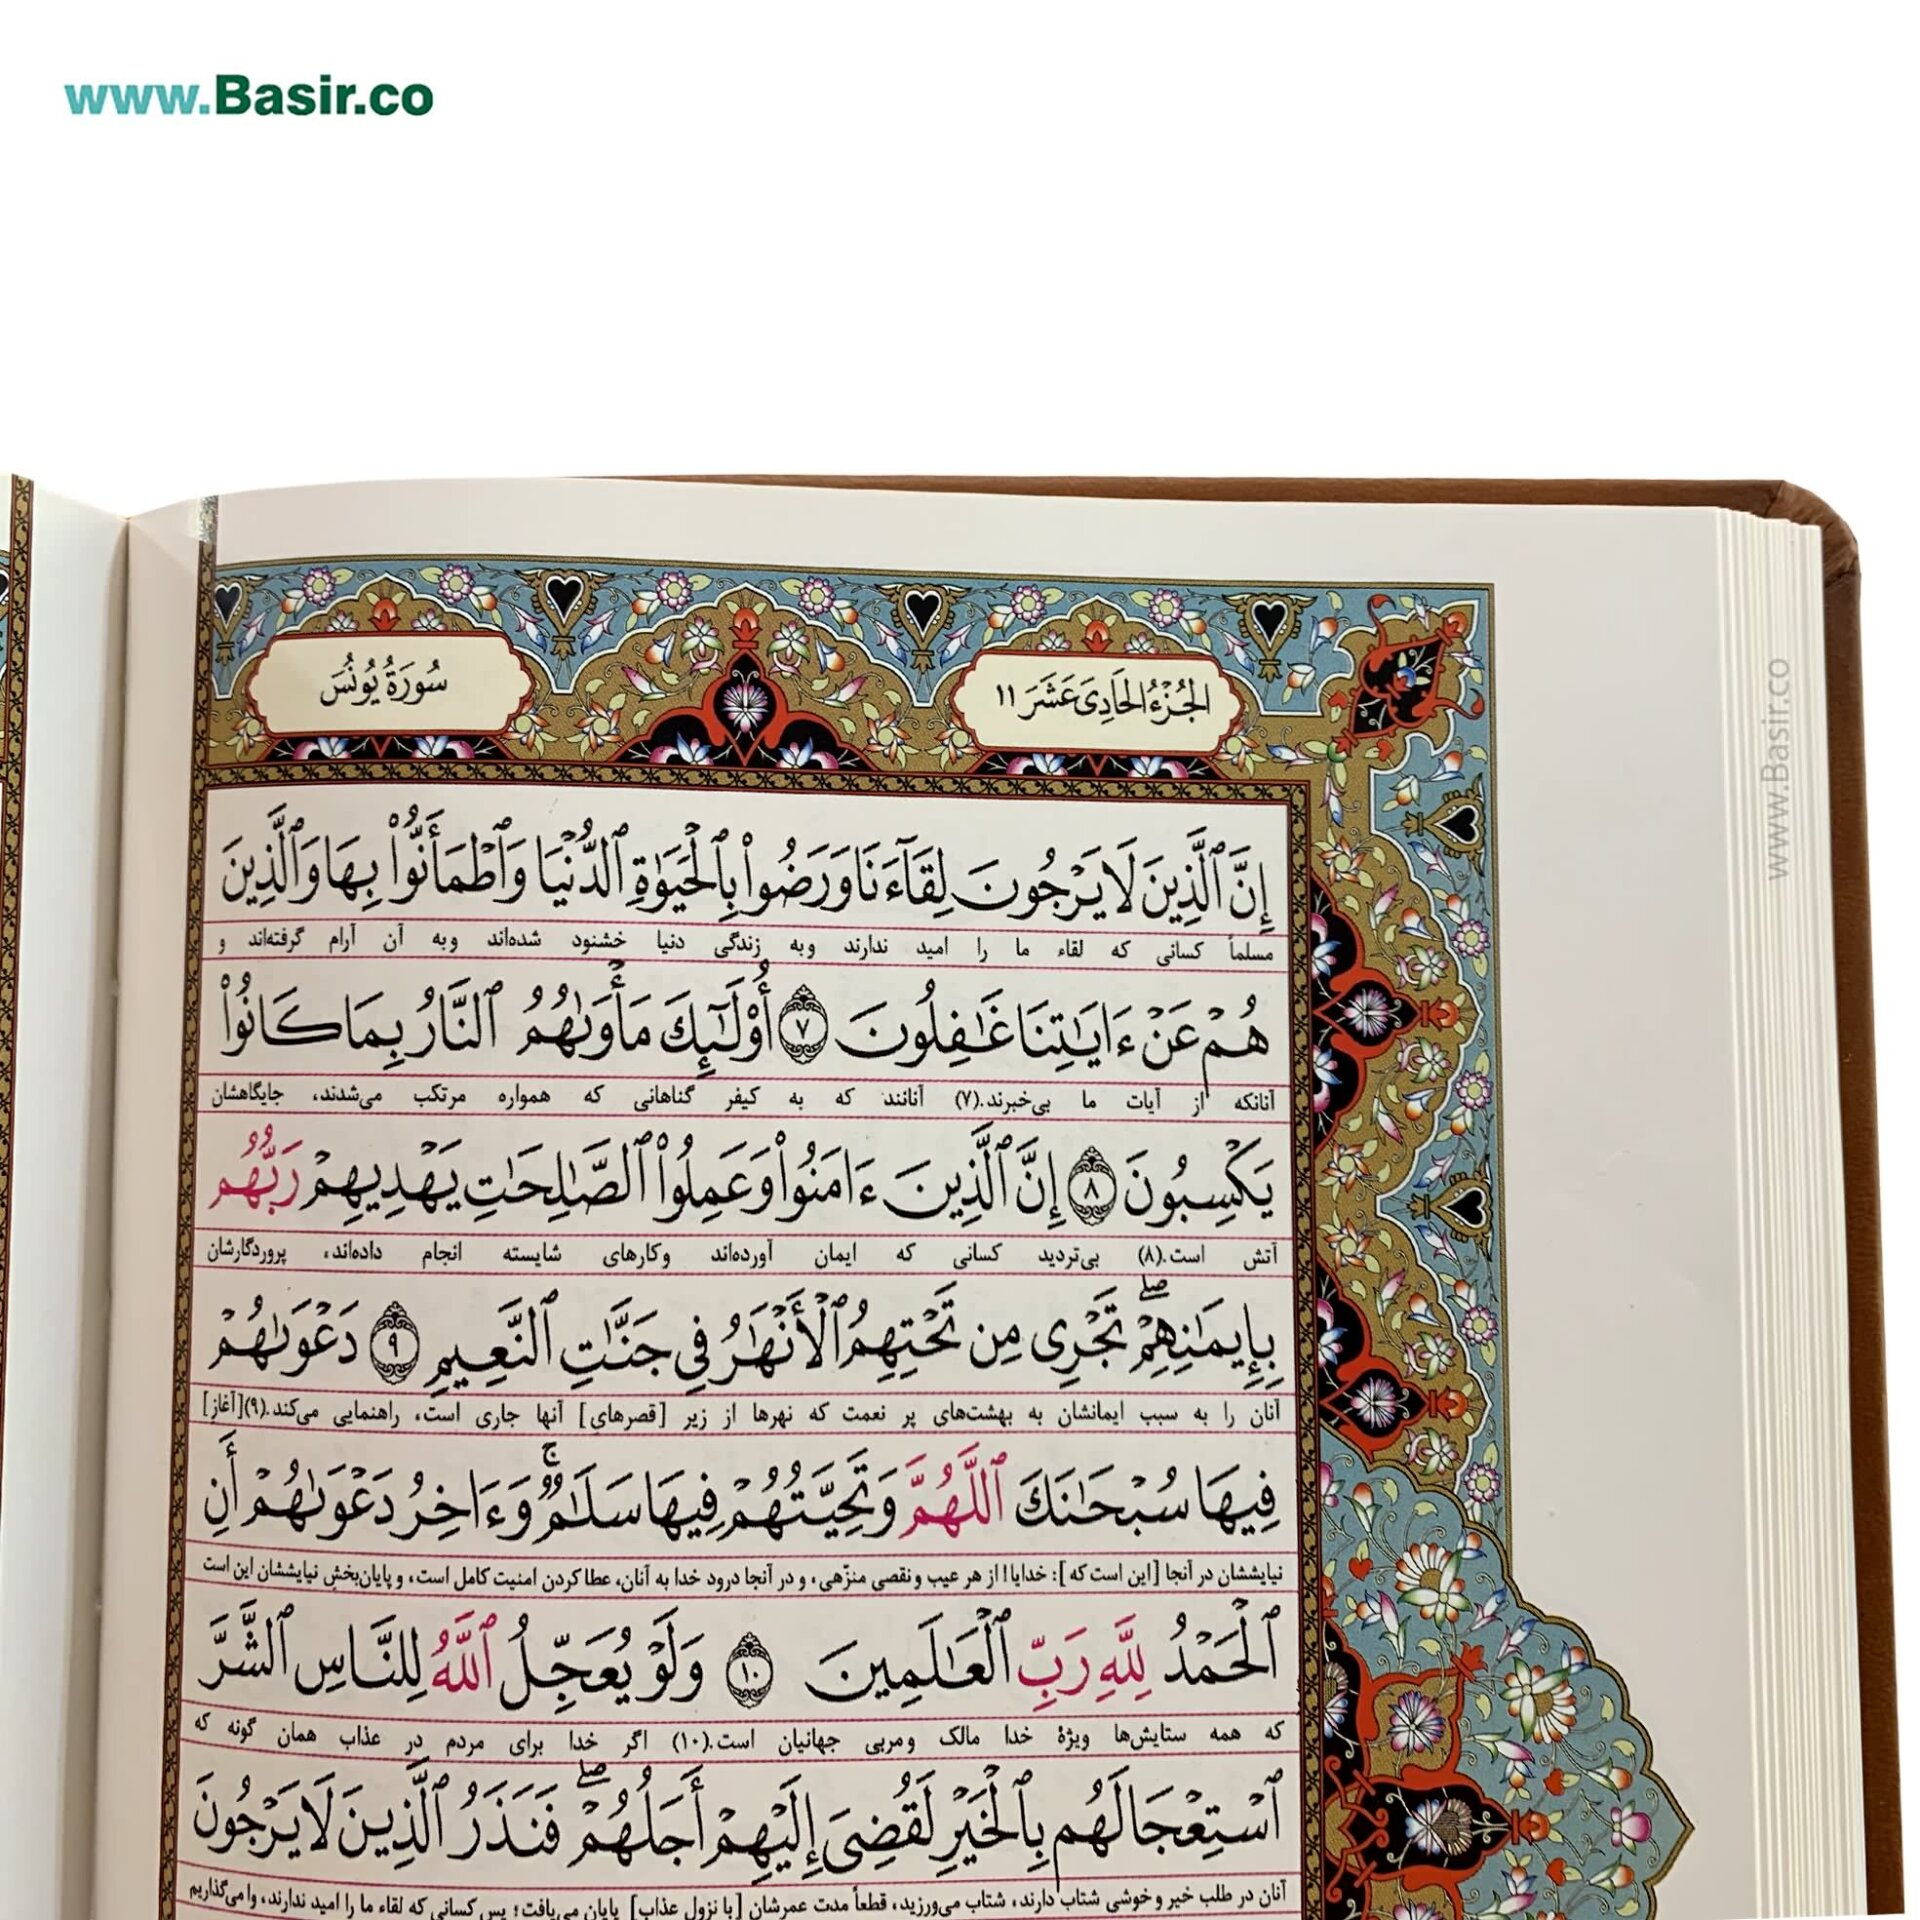 www.Basir.co
الجُزْءُ الحَادِیَ عَشَرَ ١١
سُورَةُ یُونُسَ
إِنَّ ٱلَّذِينَ لَا يَرْجُونَ لِقَآءَنَا وَرَضُوا۟ بِٱلْحَيَوٰةِ ٱلدُّنْيَا وَٱطْمَأَنُّوا۟ بِهَا وَٱلَّذِينَ
مسلماً کسانی که لقاء ما را امید ندارند وبه زندگی دنیا خشنود شده‌اند وبه آن آرام گرفته‌اند و
هُمْ عَنْ ءَايَٰتِنَا غَٰفِلُونَ ٧ أُو۟لَٰٓئِكَ مَأْوَىٰهُمُ ٱلنَّارُ بِمَا كَانُوا۟
آنانکه از آیات ما بی‌خبرند.(٧) آنانند که به کیفر گناهانی که همواره مرتکب می‌شدند، جایگاهشان
يَكْسِبُونَ ٨ إِنَّ ٱلَّذِينَ ءَامَنُوا۟ وَعَمِلُوا۟ ٱلصَّٰلِحَٰتِ يَهْدِيهِمْ رَبُّهُم
آتش است.(٨) بی‌تردید کسانی که ایمان آورده‌اند وکارهای شایسته انجام داده‌اند، پروردگارشان
بِإِيمَٰنِهِمْ ۖ تَجْرِى مِن تَحْتِهِمُ ٱلْأَنْهَٰرُ فِى جَنَّٰتِ ٱلنَّعِيمِ ٩ دَعْوَىٰهُمْ
آنان را به سبب ایمانشان به بهشت‌های پر نعمت که نهرها از زیر [قصرهای] آنها جاری است، راهنمایی می‌کند.(٩)[آغاز]
فِيهَا سُبْحَٰنَكَ ٱللَّهُمَّ وَتَحِيَّتُهُمْ فِيهَا سَلَٰمٌ ۚ وَءَاخِرُ دَعْوَىٰهُمْ أَنِ
نیایششان در آنجا [این است که]: خدایا! از هر عیب ونقصی منزّهی، و در آنجا درود خدا به آنان، عطا کردن امنیت کامل است، و پایان‌بخش نیایششان این است
ٱلْحَمْدُ لِلَّهِ رَبِّ ٱلْعَٰلَمِينَ ١٠ وَلَوْ يُعَجِّلُ ٱللَّهُ لِلنَّاسِ ٱلشَّرَّ
که همه ستایش‌ها ویژهٔ خدا مالک ومربی جهانیان است.(١٠) اگر خدا برای مردم در عذاب همان گونه که
ٱسْتِعْجَالَهُم بِٱلْخَيْرِ لَقُضِىَ إِلَيْهِمْ أَجَلُهُمْ ۖ فَنَذَرُ ٱلَّذِينَ لَا يَرْجُونَ
آنان در طلب خیر وخوشی شتاب دارند، شتاب می‌ورزید، قطعاً مدت عمرشان [با نزول عذاب] پایان می‌یافت؛ پس کسانی که لقاء ما را امید ندارند، وا می‌گذاریم
www.Basir.co